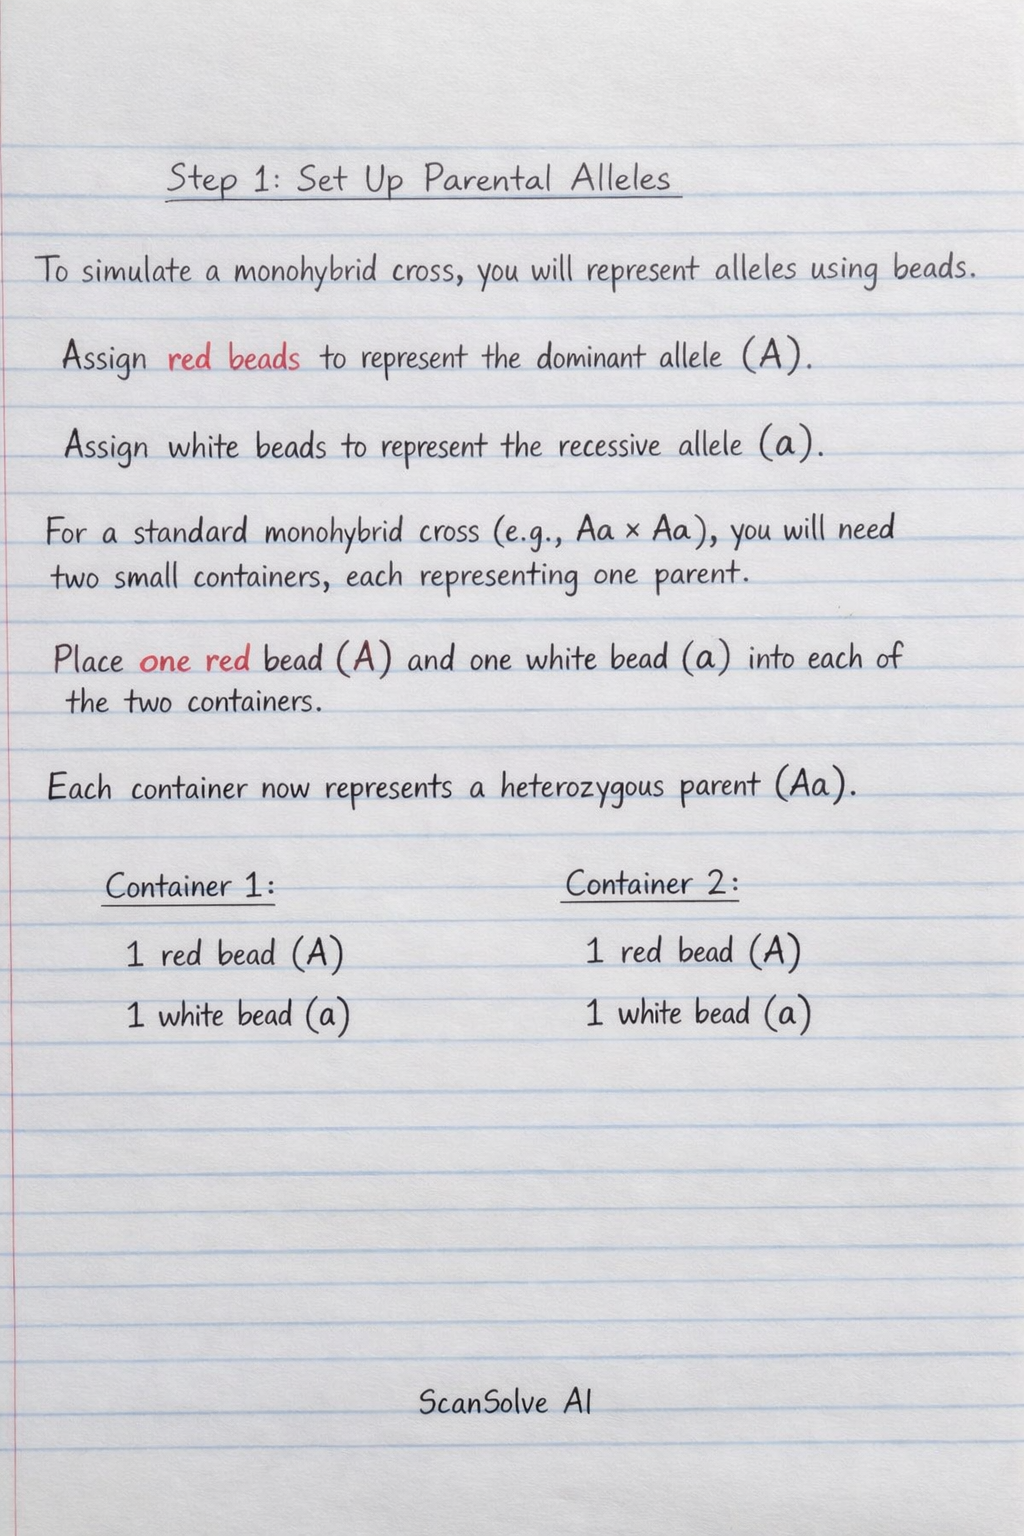 Step 1: Set Up Parental Alleles
To simulate a monohybrid cross, you will represent alleles using beads.
Assign red beads to represent the dominant allele (A).
Assign white beads to represent the recessive allele (a).
For a standard monohybrid cross (e.g., Aa × Aa), you will need
two small containers, each representing one parent.
Place one red bead (A) and one white bead (a) into each of
the two containers.
Each container now represents a heterozygous parent (Aa).
Container 1:
1 red bead (A)
1 white bead (a)
Container 2:
1 red bead (A)
1 white bead (a)
ScanSolve AI